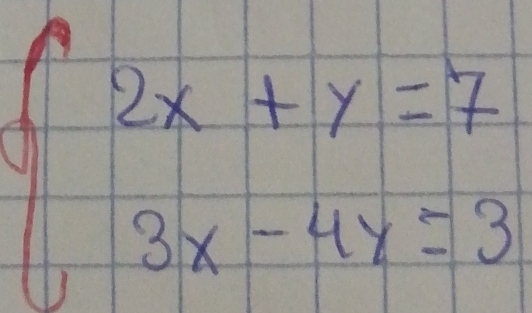 2x + y = 7
3x - 4y = 3